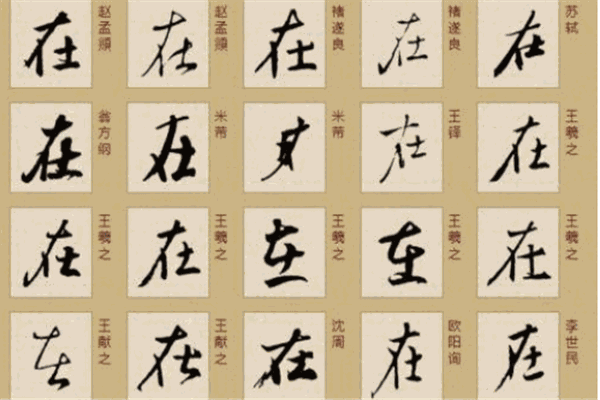 在 赵孟頫 在 赵孟頫 在 褚遂良 在 褚遂良 在 苏轼
在 翁方纲 在 米芾 在 米芾 在 王铎 在 王羲之
在 王羲之 在 王羲之 在 王羲之 在 王羲之 在 王羲之
在 王献之 在 王献之 在 沈周 在 欧阳询 在 李世民